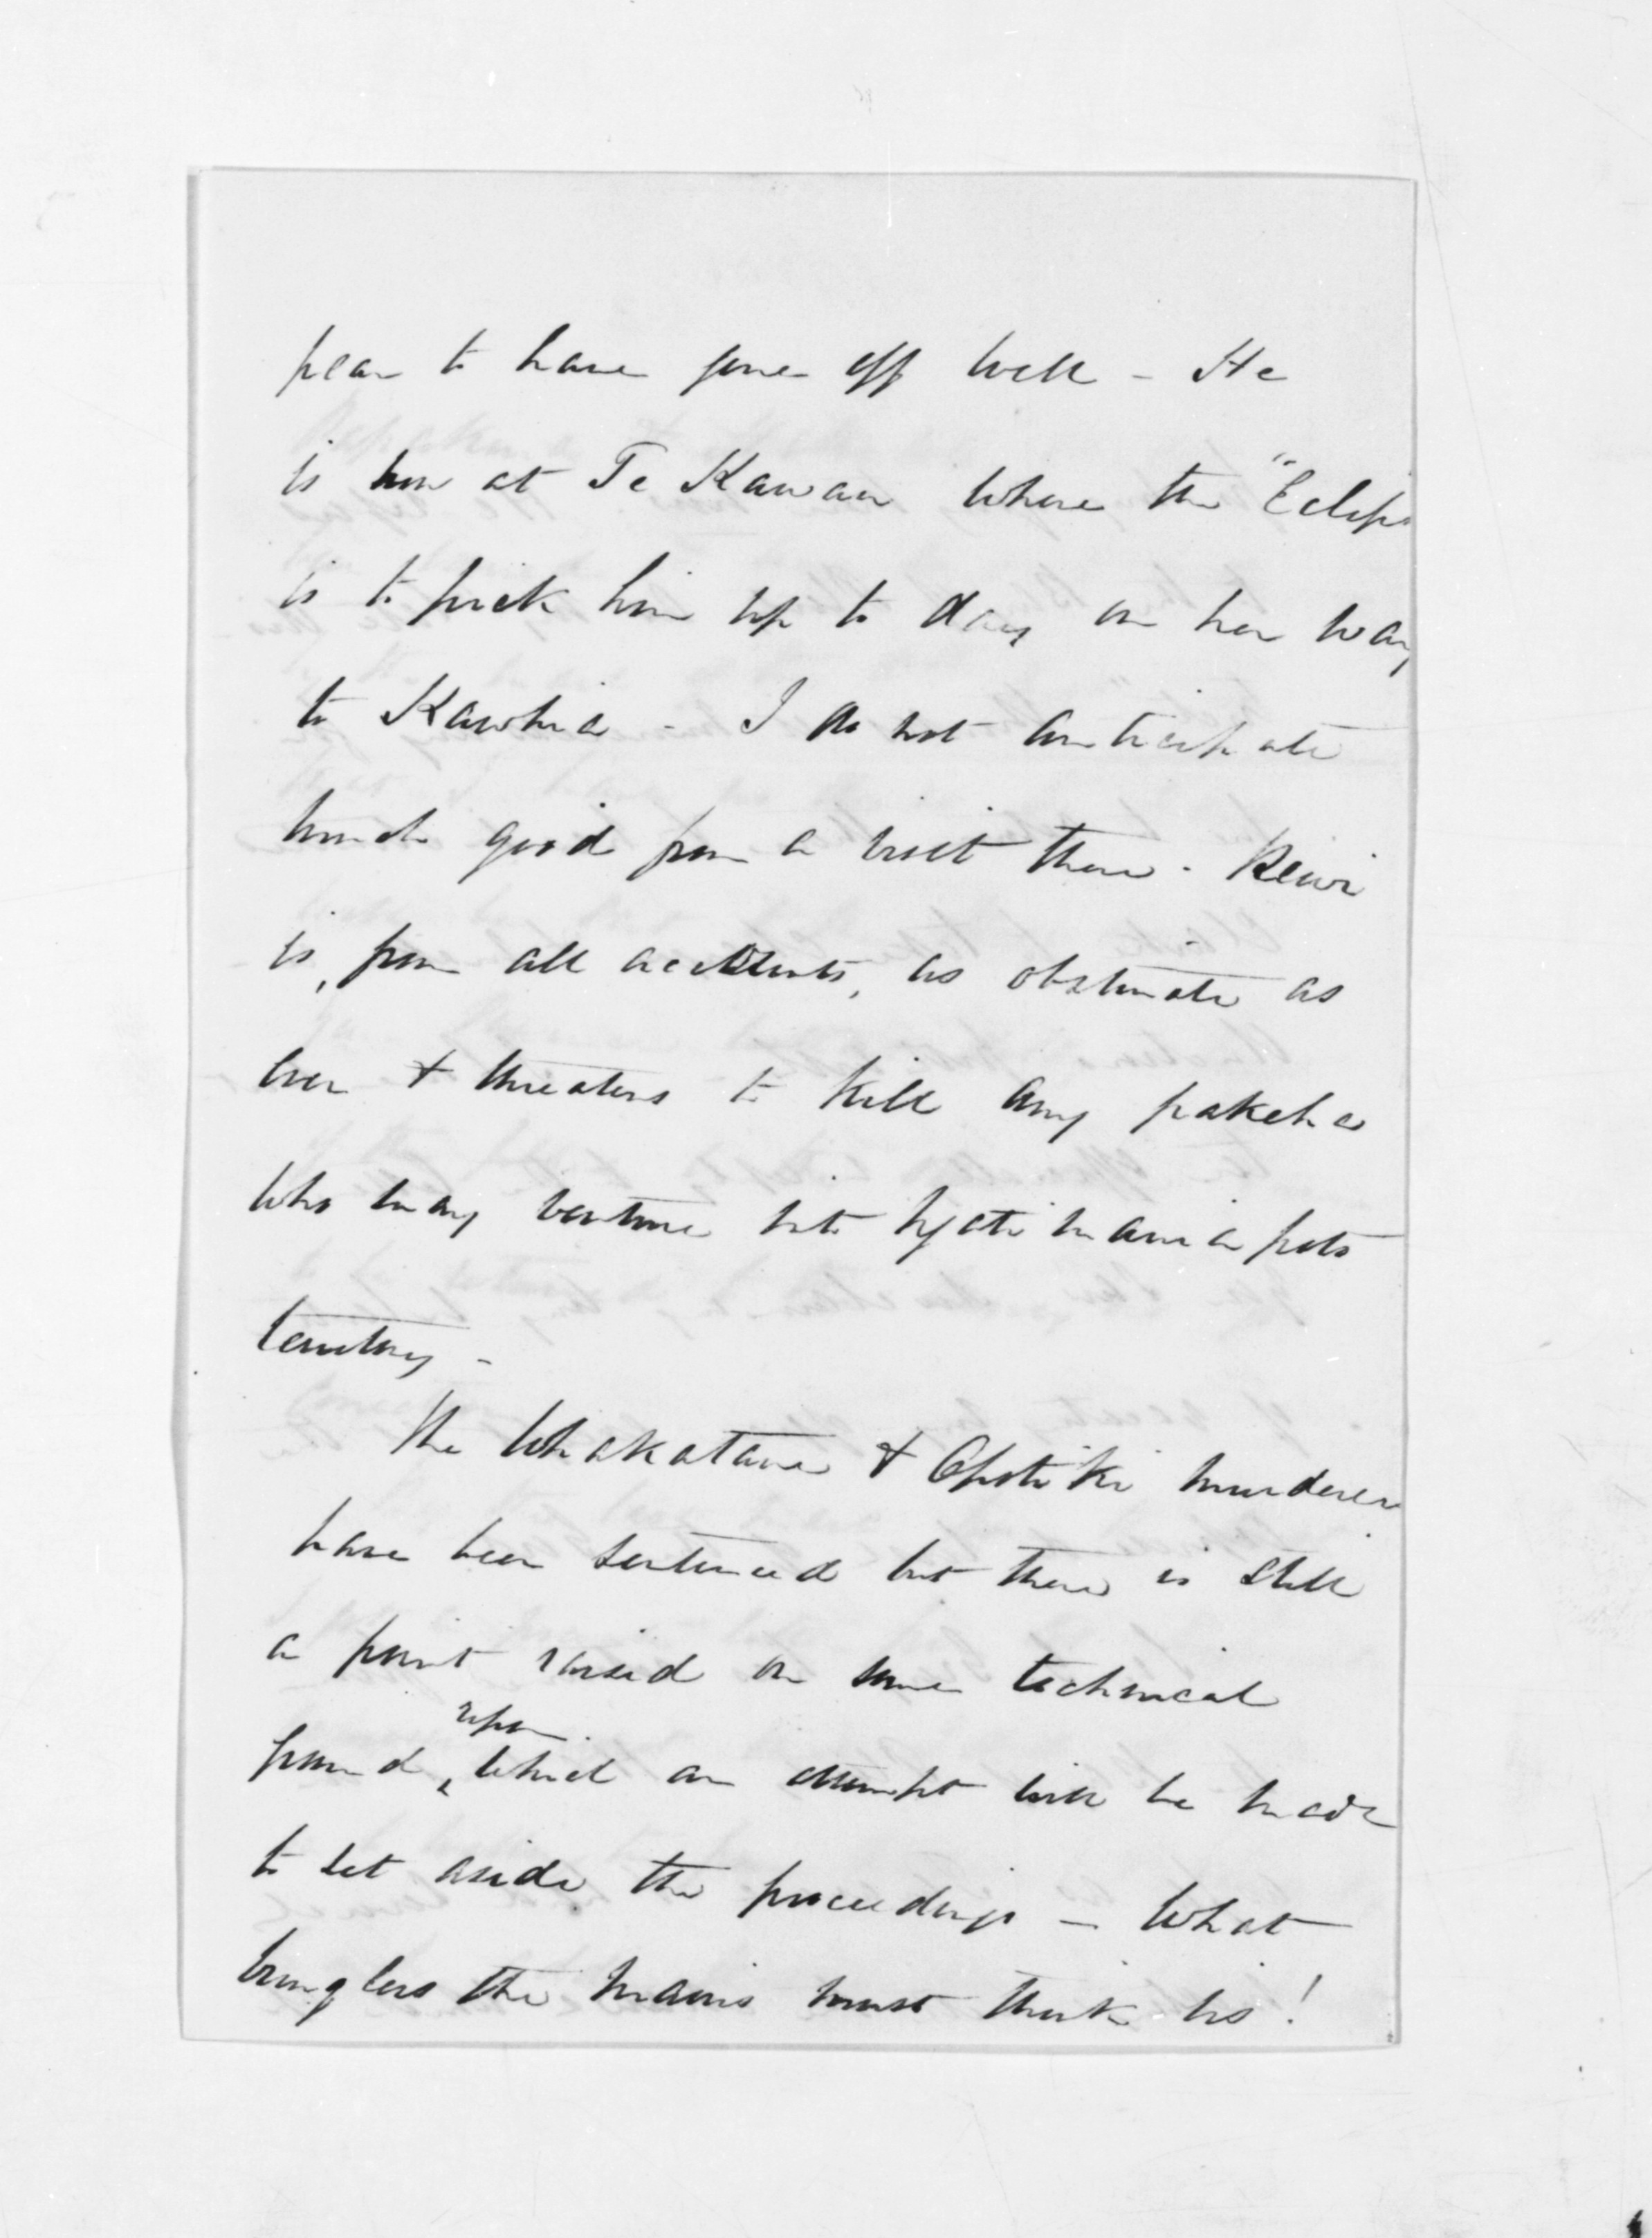 pear to have gone off well - He
is now at Te Kawau where the "Eclipse
is to pick him up to day on her way
to Kawhia - I do not anticipate
much good from a visit there. Rewi
is, from all accounts, as obstinate as
ever & threatens to kill any pakeha
who may venture into Ngatimaniapoto
territory -
The Whakatane & Opotiki murderers
have been sentenced but there is still
a point raised on some technical
upon
ground, which an attempt will be made
to set aside the proceedings - What
bunglers the Maoris must think us!